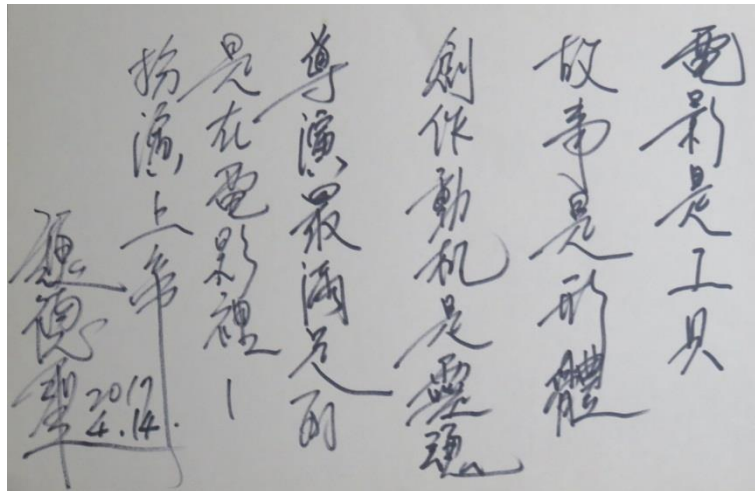 電影是工具
故事是形體
創作動机是靈魂
導演最滿足的
是在電影裡－
扮演上帝
魏德聖
2017
4.14.